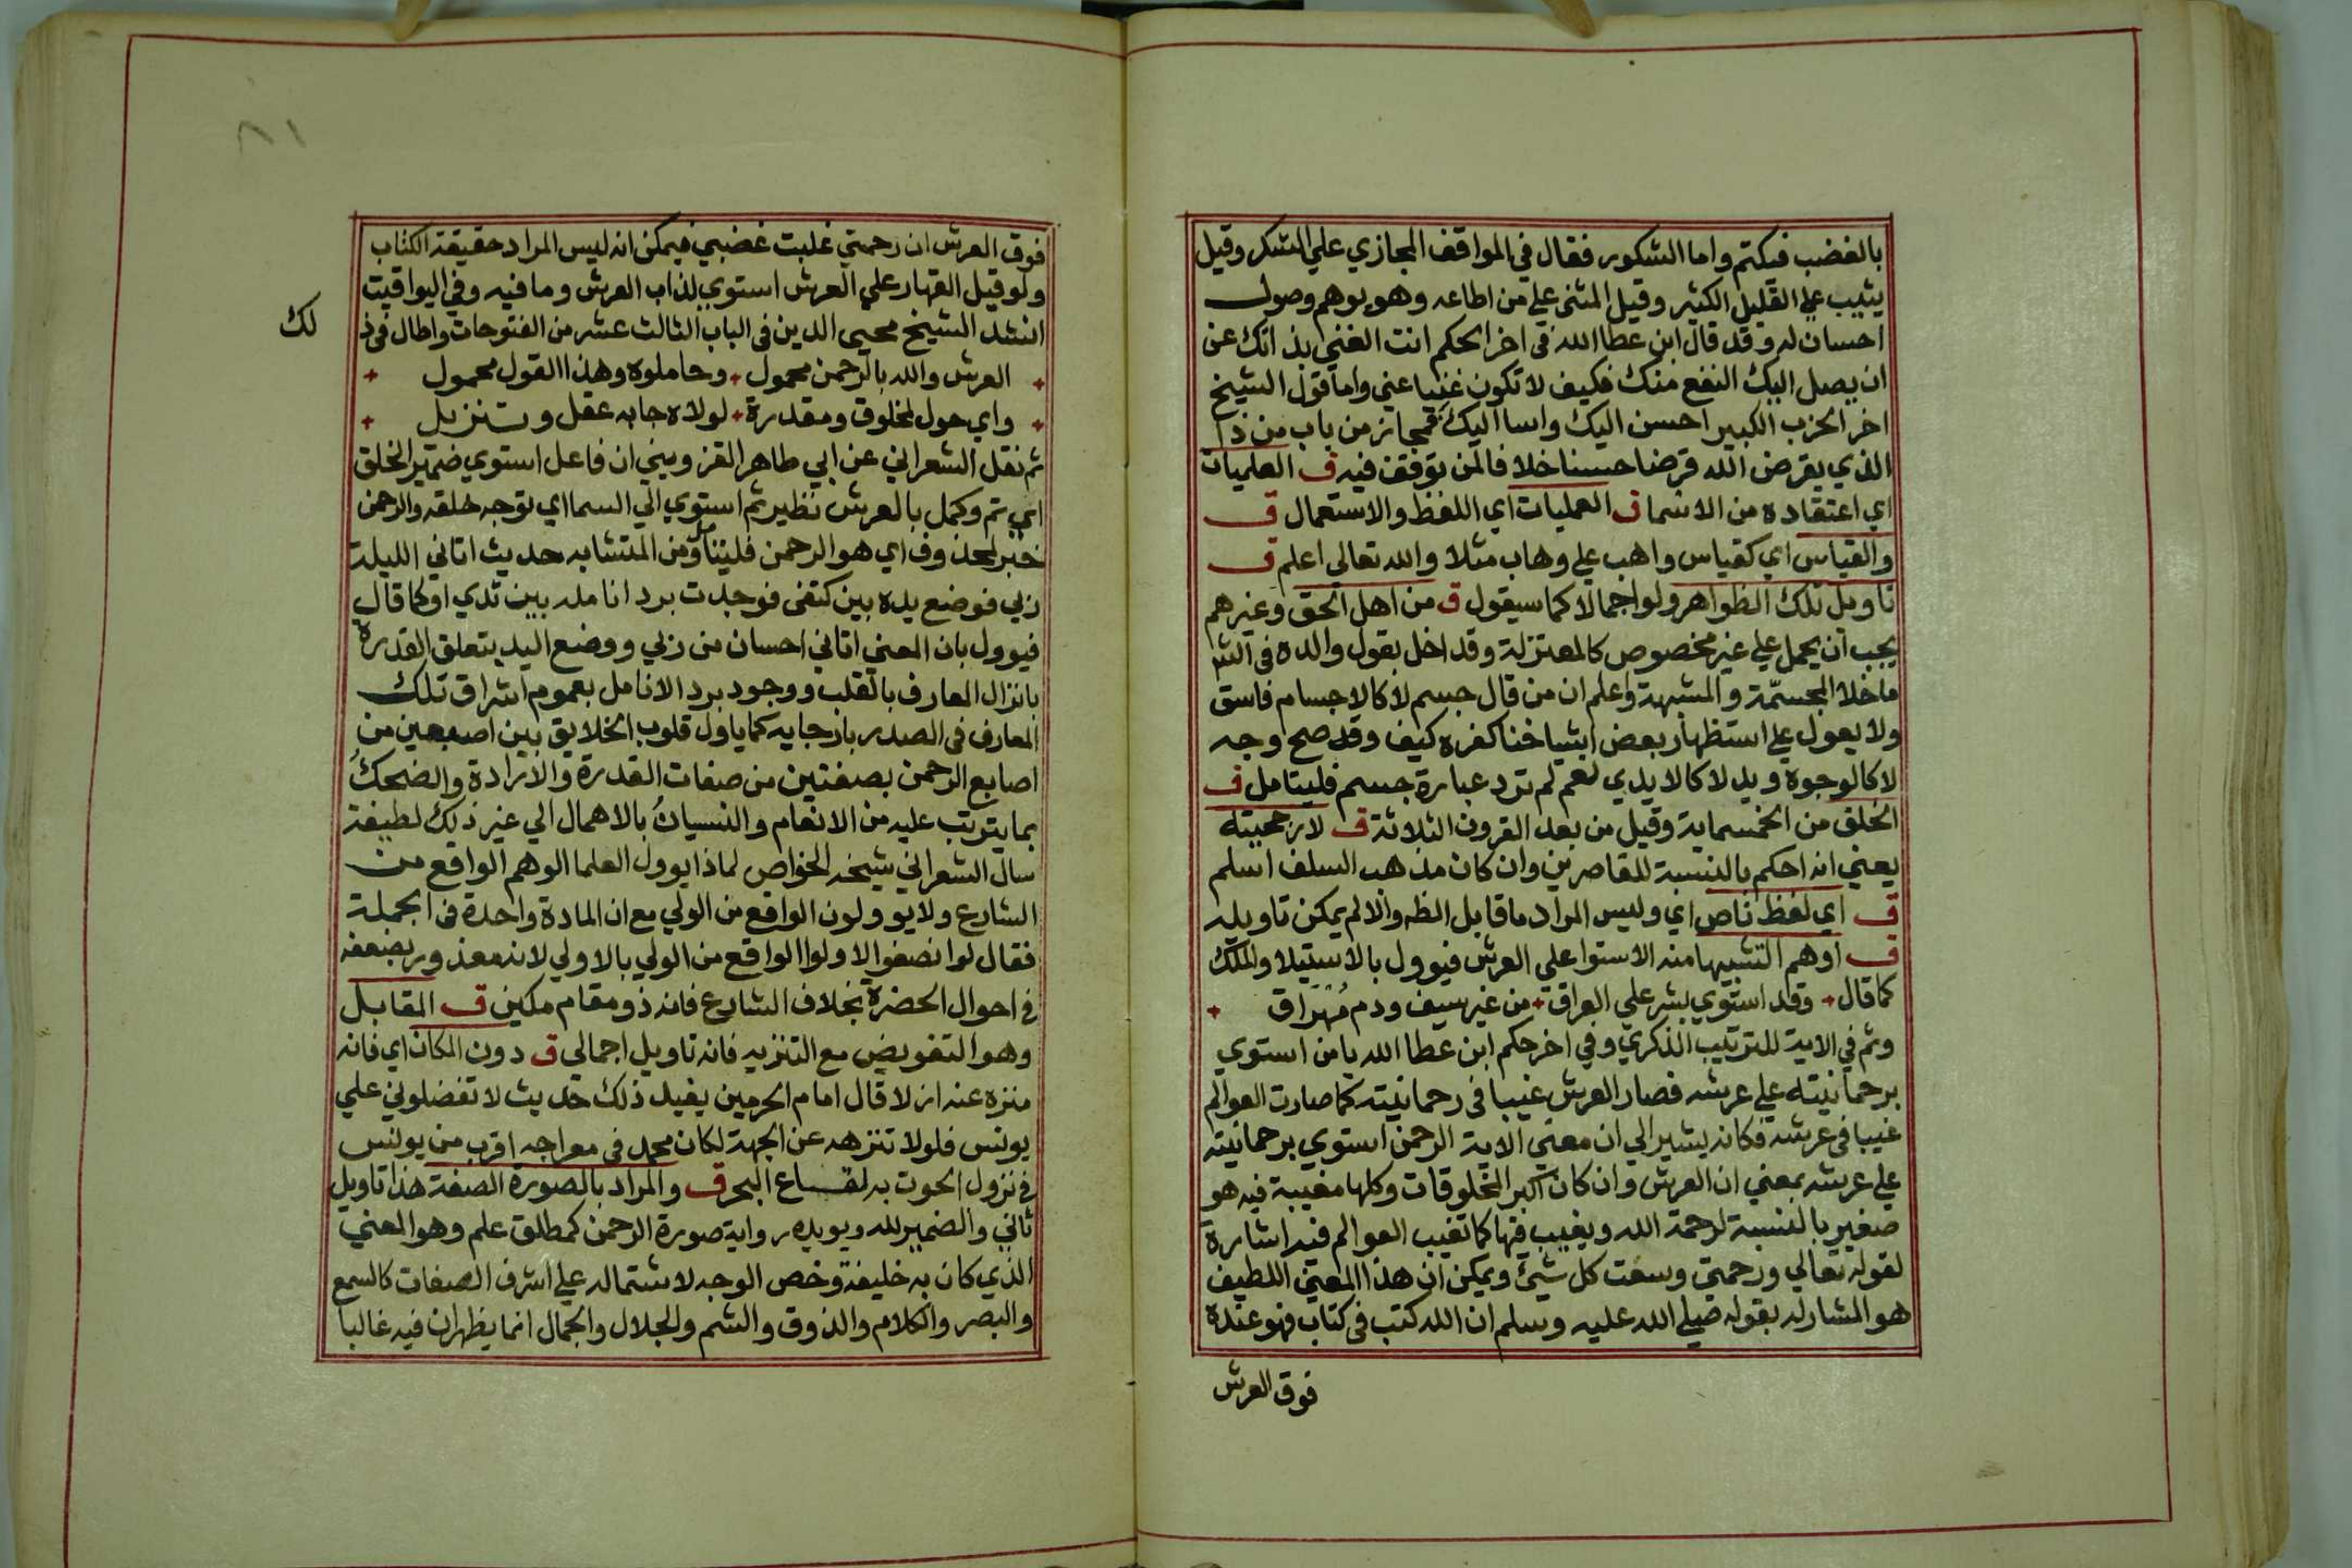 بالغضب فيكتم واما الشكور فقال في المواقف المجازي علي الشكر وقيل
يثيب علي القليل الكثير وقيل المثنى علي من اطاعه وهو يوهم وصول
احسان له وقد قال ابن عطا الله في اخر الحكم انت الغني بذاتك عن
ان يصل اليك النفع منك فكيف لا تكون غنيا عني واما قول الشيخ
اخر الحزب الكبير احسن اليك واسا اليك فمجاز من باب من ذا
الذي يقرض الله قرضا حسنا خلافا لمن توقف فيه ق العلميات
اي اعتقاده من الاسما ق العمليات اي اللفظ والاستعمال ق
والقياس اي كقياس واهب علي وهاب مثلا والله تعالي اعلم ق
تاويل تلك الظواهر ولو اجمالا كما سيقول ق من اهل الحق وغيرهم
يجب ان يحمل علي غير مخصوص كالمعتزلة وقد اخل بقول والده في الش
ما خلا المجسمّة والمشبهة واعلم ان من قال جسم لا كالاجسام فاسق
ولا يعول علي استظهار بعض اشياخنا كفره كيف وقد صح وجه
لا كالوجوه ويد لا كالايدي نعم لم ترد عبارة جسم فليتامل ق
الخلق من الخمسماية وقيل من بعد القرون الثلاثة ق لارجحيته
يعني انه احكم بالنسبة للقاصرين وان كان مذهب السلف اسلم
ق اي لفظ ناص اي وليس المراد ما قابل الظه والا لم يمكن تاويله
ق اوهم التشبيها منه الاستوا علي العرش فيوول بالاستيلا والملك
كما قال + وقد استوي بشر علي العراق + من غير سيف ودم مُهَرَاق +
وثم في الاية للترتيب الذكري وفي اخر حكم ابن عطا الله يا من استوي
برحمانيته علي عرشه فصار العرش غيبا في رحمانيته كما صارت العوالم
غيبا في عرشه فكانه يشير الي ان معني الاية الرحمن استوي برحمانيته
علي عرشه بمعني ان العرش وان كان اكبر المخلوقات وكلها مغيبة فيه هو
صغير بالنسبة لرحمة الله ويغيب فيها كما تغيب العوالم فيه اشارة
لقوله تعالي ورحمتي وسعت كل شيئ ويمكن ان هذا المعني اللطيف
هو المشار له بقوله صلي الله عليه وسلم ان الله كتب في كتاب فهو عنده
فوق العرش
٨١
فوق العرش ان رحمتي غلبت غضبي فيمكن انه ليس المراد حقيقة الكتاب
ولو قيل القهار علي العرش استوي لذاب العرش وما فيه وفي اليواقيت
انشد الشيخ محيي الدين في الباب الثالث عشر من الفتوحات واطال في ذ
لك
+ العرش والله بالرحمن محمول + وحاملوه وهذا القول محمول +
+ واي حول لمخلوق ومقدرة + لولاه جا به عقل وتنزيل +
ثم نقل الشعراني عن ابي طاهر القزويني ان فاعل استوي ضمير الخلق
اي تم وكمل بالعرش نظير ثم استوي الي السما اي توجه خلقه والرحمن
خبر لمحذوف اي هو الرحمن فليتامل ومن المتشابه حديث اتاني الليلة
ربي فوضع يده بين كتفي فوجدت برد انامله بين ثديي او كما قال
فيوول بان المعني اتاني احسان من ربي ووضع اليد بتعلق القدرة
بانزال المعارف بالقلب ووجود برد الانامل بعموم اشراق تلك
المعارف في الصدر بارجايه كما ياول قلوب الخلايق بين اصبعين من
اصابع الرحمن بصفتين من صفات القدرة والارادة والضحكُ
بما يترتب عليه من الانعام والنسيانُ بالاهمال الي غير ذلك لطيفة
سال الشعراني شيخه الخواص لماذا يوول العلما الوهم الواقع من
الشارع ولا يوولون الواقع من الولي مع ان المادة واحدة في الجملة
فقال لو انصفوا لاولوا الواقع من الولي بالاولي لانه معذور بضعفه
في احوال الحضرة بخلاف الشارع فانه ذو مقام مكين ق المقابل
وهو التفويض مع التنزيه فانه تاويل اجمالي ق دون المكان اي فانه
منزه عنه ازلا قال امام الحرمين يفيد ذلك حديث لا تفضلوني علي
يونس فلولا تنزهه عن الجهة لكان محمد في معراجه اقرب من يونس
في نزول الحوت به لقاع البحر ق والمراد بالصورة الصفة هذا تاويل
ثاني والضمير لله ويويده رواية صورة الرحمن كمطلق علم وهو المعني
الذي كان به خليفة وخص الوجه لاشتماله علي اشرف الصفات كالسمع
والبصر والكلام والذوق والشم والجلال والجمال انما يظهران فيه غالبا